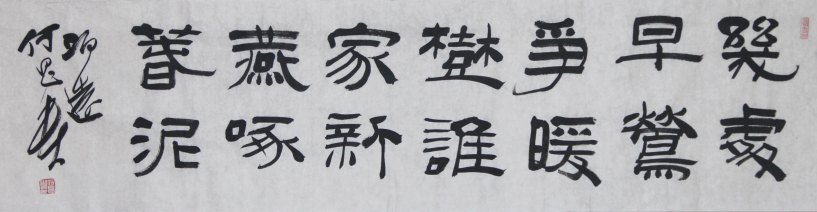 幾處
早鶯
爭暖
樹誰
家新
燕啄
春泥